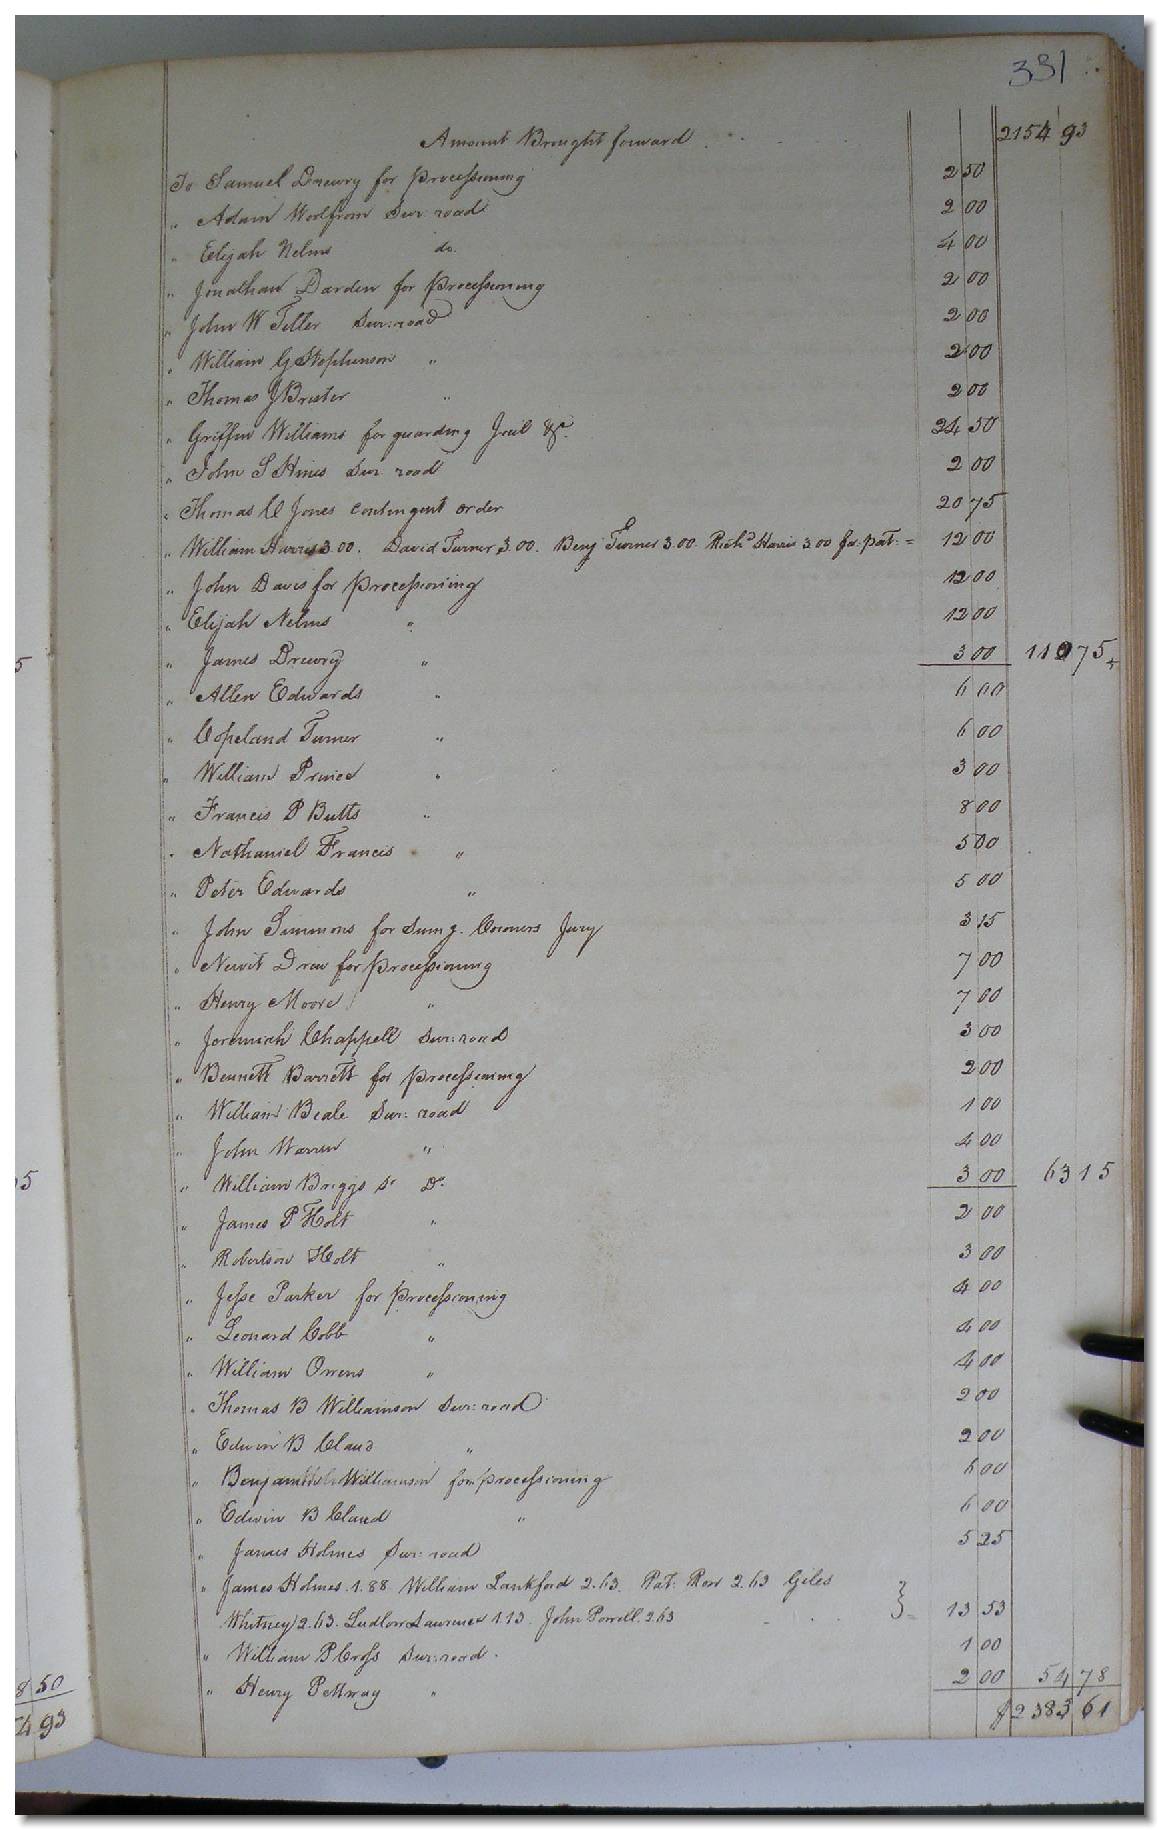 331
Amount Brought forward 2154 93
To Samuel Drewry for processioning 2 50
" Adam Worlfrom Sur: road 2 00
" Elijah Nelms do. 4 00
" Jonathan Darden for processioning 2 00
" John W Teller Sur: road 2 00
" William G Stephenson " 2 00
" Thomas J Brister " 2 00
" Griffin Williams for guarding Jail &c. 24 50
" John S Hines Sur road 2 00
" Thomas C Jones contingent order 20 75
" William Harris 3.00. David Turner 3.00. Benj Turner 3.00. Richd Harris 3.00 for pat: = 12 00
" John Davis for processioning 12 00
" Elijah Nelms " 12 00
" James Drewry " 3 00 110 75
" Allen Edwards " 6 00
" Copeland Turner " 6 00
" William Prince " 3 00
" Francis P Butts " 8 00
" Nathaniel Francis " 5 00
" Peter Edwards " 5 00
" John Simmons for sumg. Coroners Jury 3 15
" Newit Drew for processioning 7 00
" Henry Moore " 7 00
" Jeremiah Chappell Sur: road 3 00
" Bennett Barrett for processioning 2 00
" William Beale Sur: road 1 00
" John Warren " 4 00
" William Briggs Sr Do. 3 00 63 15
" James P Holt " 2 00
" Robertson Holt " 3 00
" Jesse Parker for processioning 4 00
" Leonard Cobb " 4 00
" William Owens " 4 00
" Thomas B Williamson Sur: road 2 00
" Edwin B Claud " 2 00
" Benjamin Williamson for processioning 6 00
" Edwin B Claud " 6 00
" James Holmes Sur: road 5 25
" James Holmes. 1.88 William Lankford 2.63. Pat: Rew 2.63 Giles
Whitney 2.63. Ludlow Laurence 1.13. John Powell. 2.63 } = 13 53
" William P Cross Sur: road. 1 00
" Henry Pettway " 2 00 54 78
$2383 61
5
95
8 50
54 93